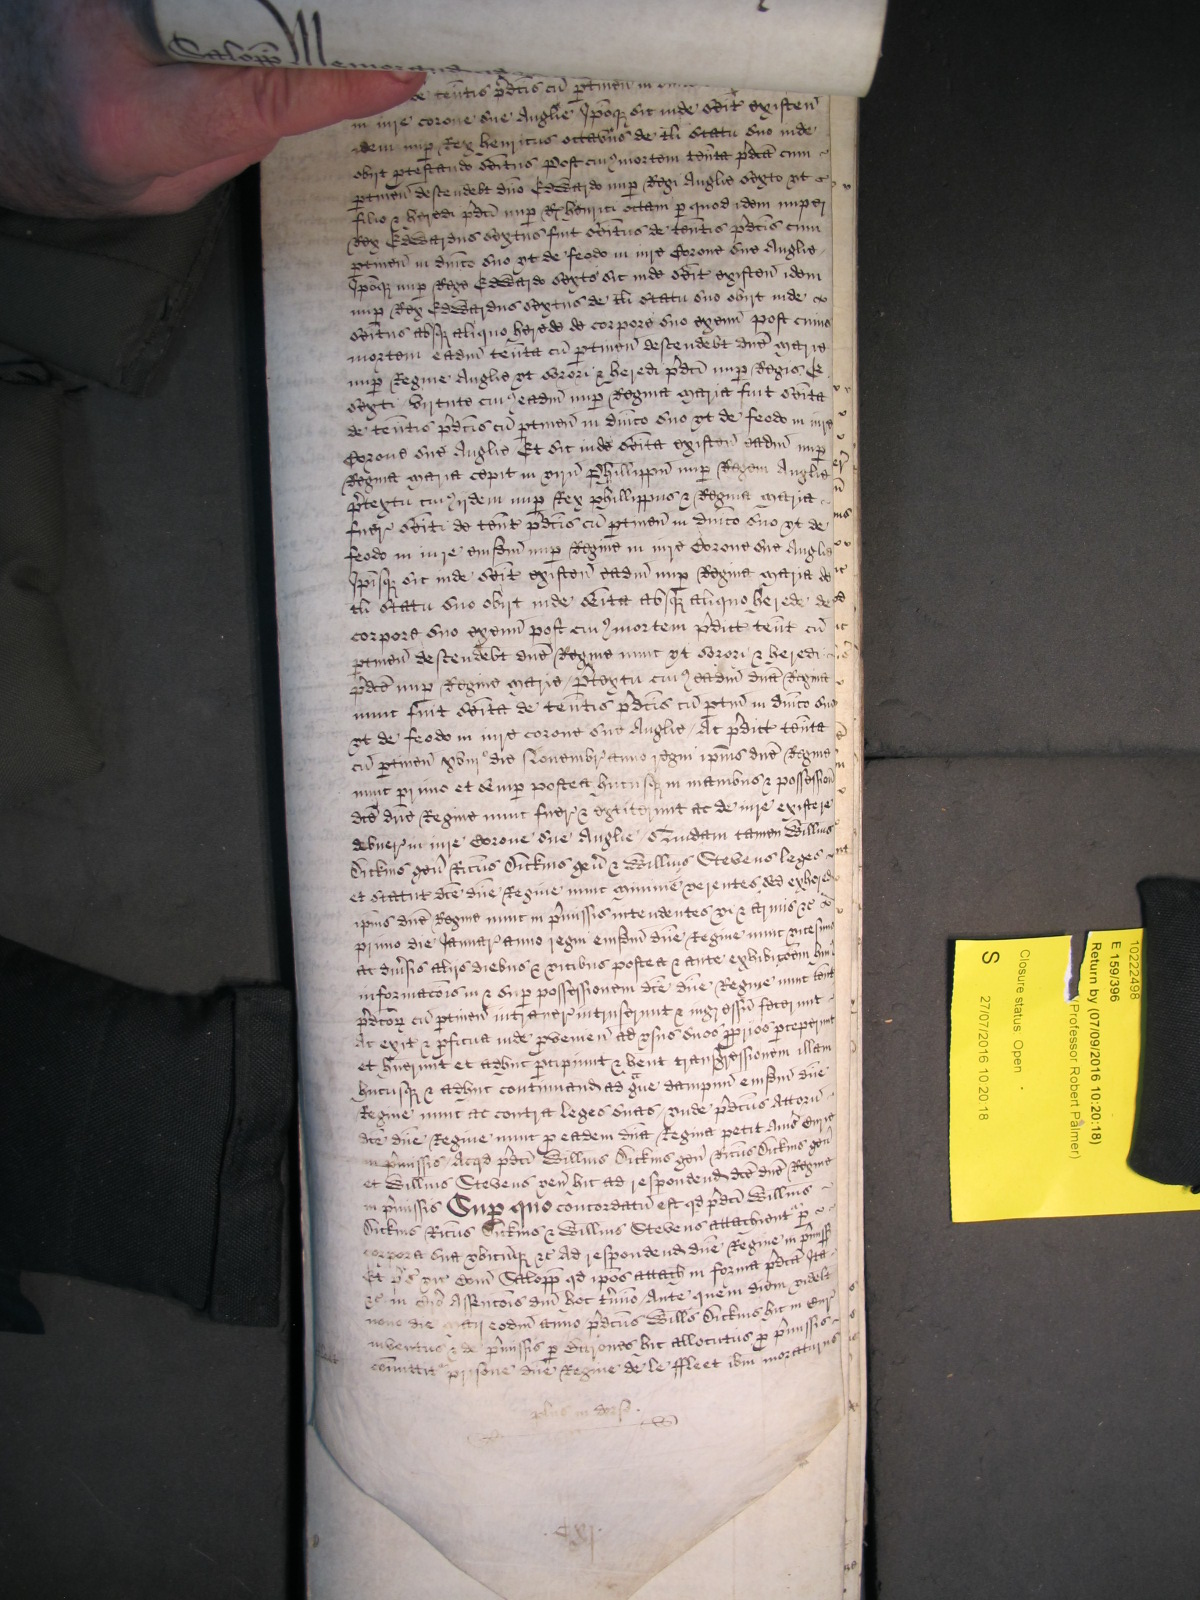 Salopp Memorand
de tentis pdcis cu ptinen in
in iure corone sue Anglie Ipoq sic inde seit existen
idem nup Rex henricus octavus de tli statu suo inde
obijt ptestando seitus Post cuius mortem tenta pdca cum
ptinen descendebt dno Edwardo nup Regi Anglie sexto vt
filio & heredi pdci nup R henrici octavi p quod idem nuper
Rex Edwardus sextus fuit seitus de tentis pdcis cum
ptinen in dnico suo vt de feodo in iure Corone sue Anglie
Ipoq nup Rege Edwardo sexto sic inde seit existen idem
nup Rex Edwardus sextus de tli statu suo obijt inde
seitus absq aliquo herede de corpore suo exeun post cuius
mortem eadm tenta cu ptinen descendebt dne Marie
nup Regine Anglie vt sorori & heredi pdci nup Regis E
sexti virtute cuius eadm nup Regina Maria fuit seita
de tentis pdcis cu ptinen in dnico suo vt de feodo in iure
Corone sue Anglie Et sic inde seita existen eadm nup
Regina Maria cepit in viru Phillippu nup Regem Anglie
ptextu cuius ijdem nup Rex Phillippus & Regina Maria
fuer seiti de tent pdcis cu ptinen in dnico suo vt de
feodo in iure eiusdm nup Regine in iure Corone sue Anglie
Ipisq sic inde seit existen eadm nup Regina Maria de
tli statu suo obijt inde seita absq aliquo herede de
corpore suo exeun post cuius mortem pdict tent cu
ptinen descendebt dne Regine nunc vt sorori & heredi
pdce nup Regine Marie / Ptextu cuius eadm dna Regina
nunc fuit seita de tentis pdcis cu ptin in dnico suo
vt de feodo in iure corone sue Anglie / Ac pdict tenta
cu ptinen xvij die Novembr anno regni ipius dne Regine
nunc primo et semp postea hucusq in manibus & possession
dce dne Regine nunc fuer & extiterunt ac de iure existere
debuer in iure Corone sue Anglie / Quidam tamen Willus
Dickins gen Ricus Dickins gen & Willus Stevens leges
et statut dce dne Regine nunc minime verentes sed exhered
ipius dne Regine nunc in pmissis intendentes vi & armis &c
primo die Januar anno regni eiusdm dne Regine nunc vicesimo
ac diusis alijs diebus & vicibus postea & ante exhibicoem hui
informacois in & sup possessionem dce dne Regine nunc tent
pdcor cu ptinen intraver intruserunt & ingressu fecerunt
Ac exit & pficua inde pvenien ad vsus suos pprios pceperunt
et huerunt et adhuc pcipiunt & hent transgressionem illam
hucusq & adhuc continuand ad gve dampnu eiusdm dne
Regine nunc ac contra leges suas / vnde pdcus Attorn
dce dne Regine nunc p eadem dna Regina petit
in pmissis / Acqd pdci Willus Dickins gen Ricus Dickins gen
et Willus Stevens ven hic ad respondend dce dne Regine
in pmissis Sup quo concordatu est qd pdci Willus
Dickins Ricus Dickins & Willus Stevens attachient p
corpora sua vbicuq &c Ad respondend dne Regine in pmiss
Et vic Com Salopp qd ipos attach in forma pdca Ita
&c in Ascencois dni hoc tmino / Ante quem diem videlt
nono die Maij eodm anno pdcus Willus Dickins hic in Cur
inventus & de pmissis p Barones hic allocutus p pmissis
comittit prisone dne Regine de le ffleet ibm moraturus
plus in dorso
10222498
E 159/396
Return by (07/09/2016 10:20:18)
(Professor Robert Palmer)
Closure status: Open
27/07/2016 10:20:18
S